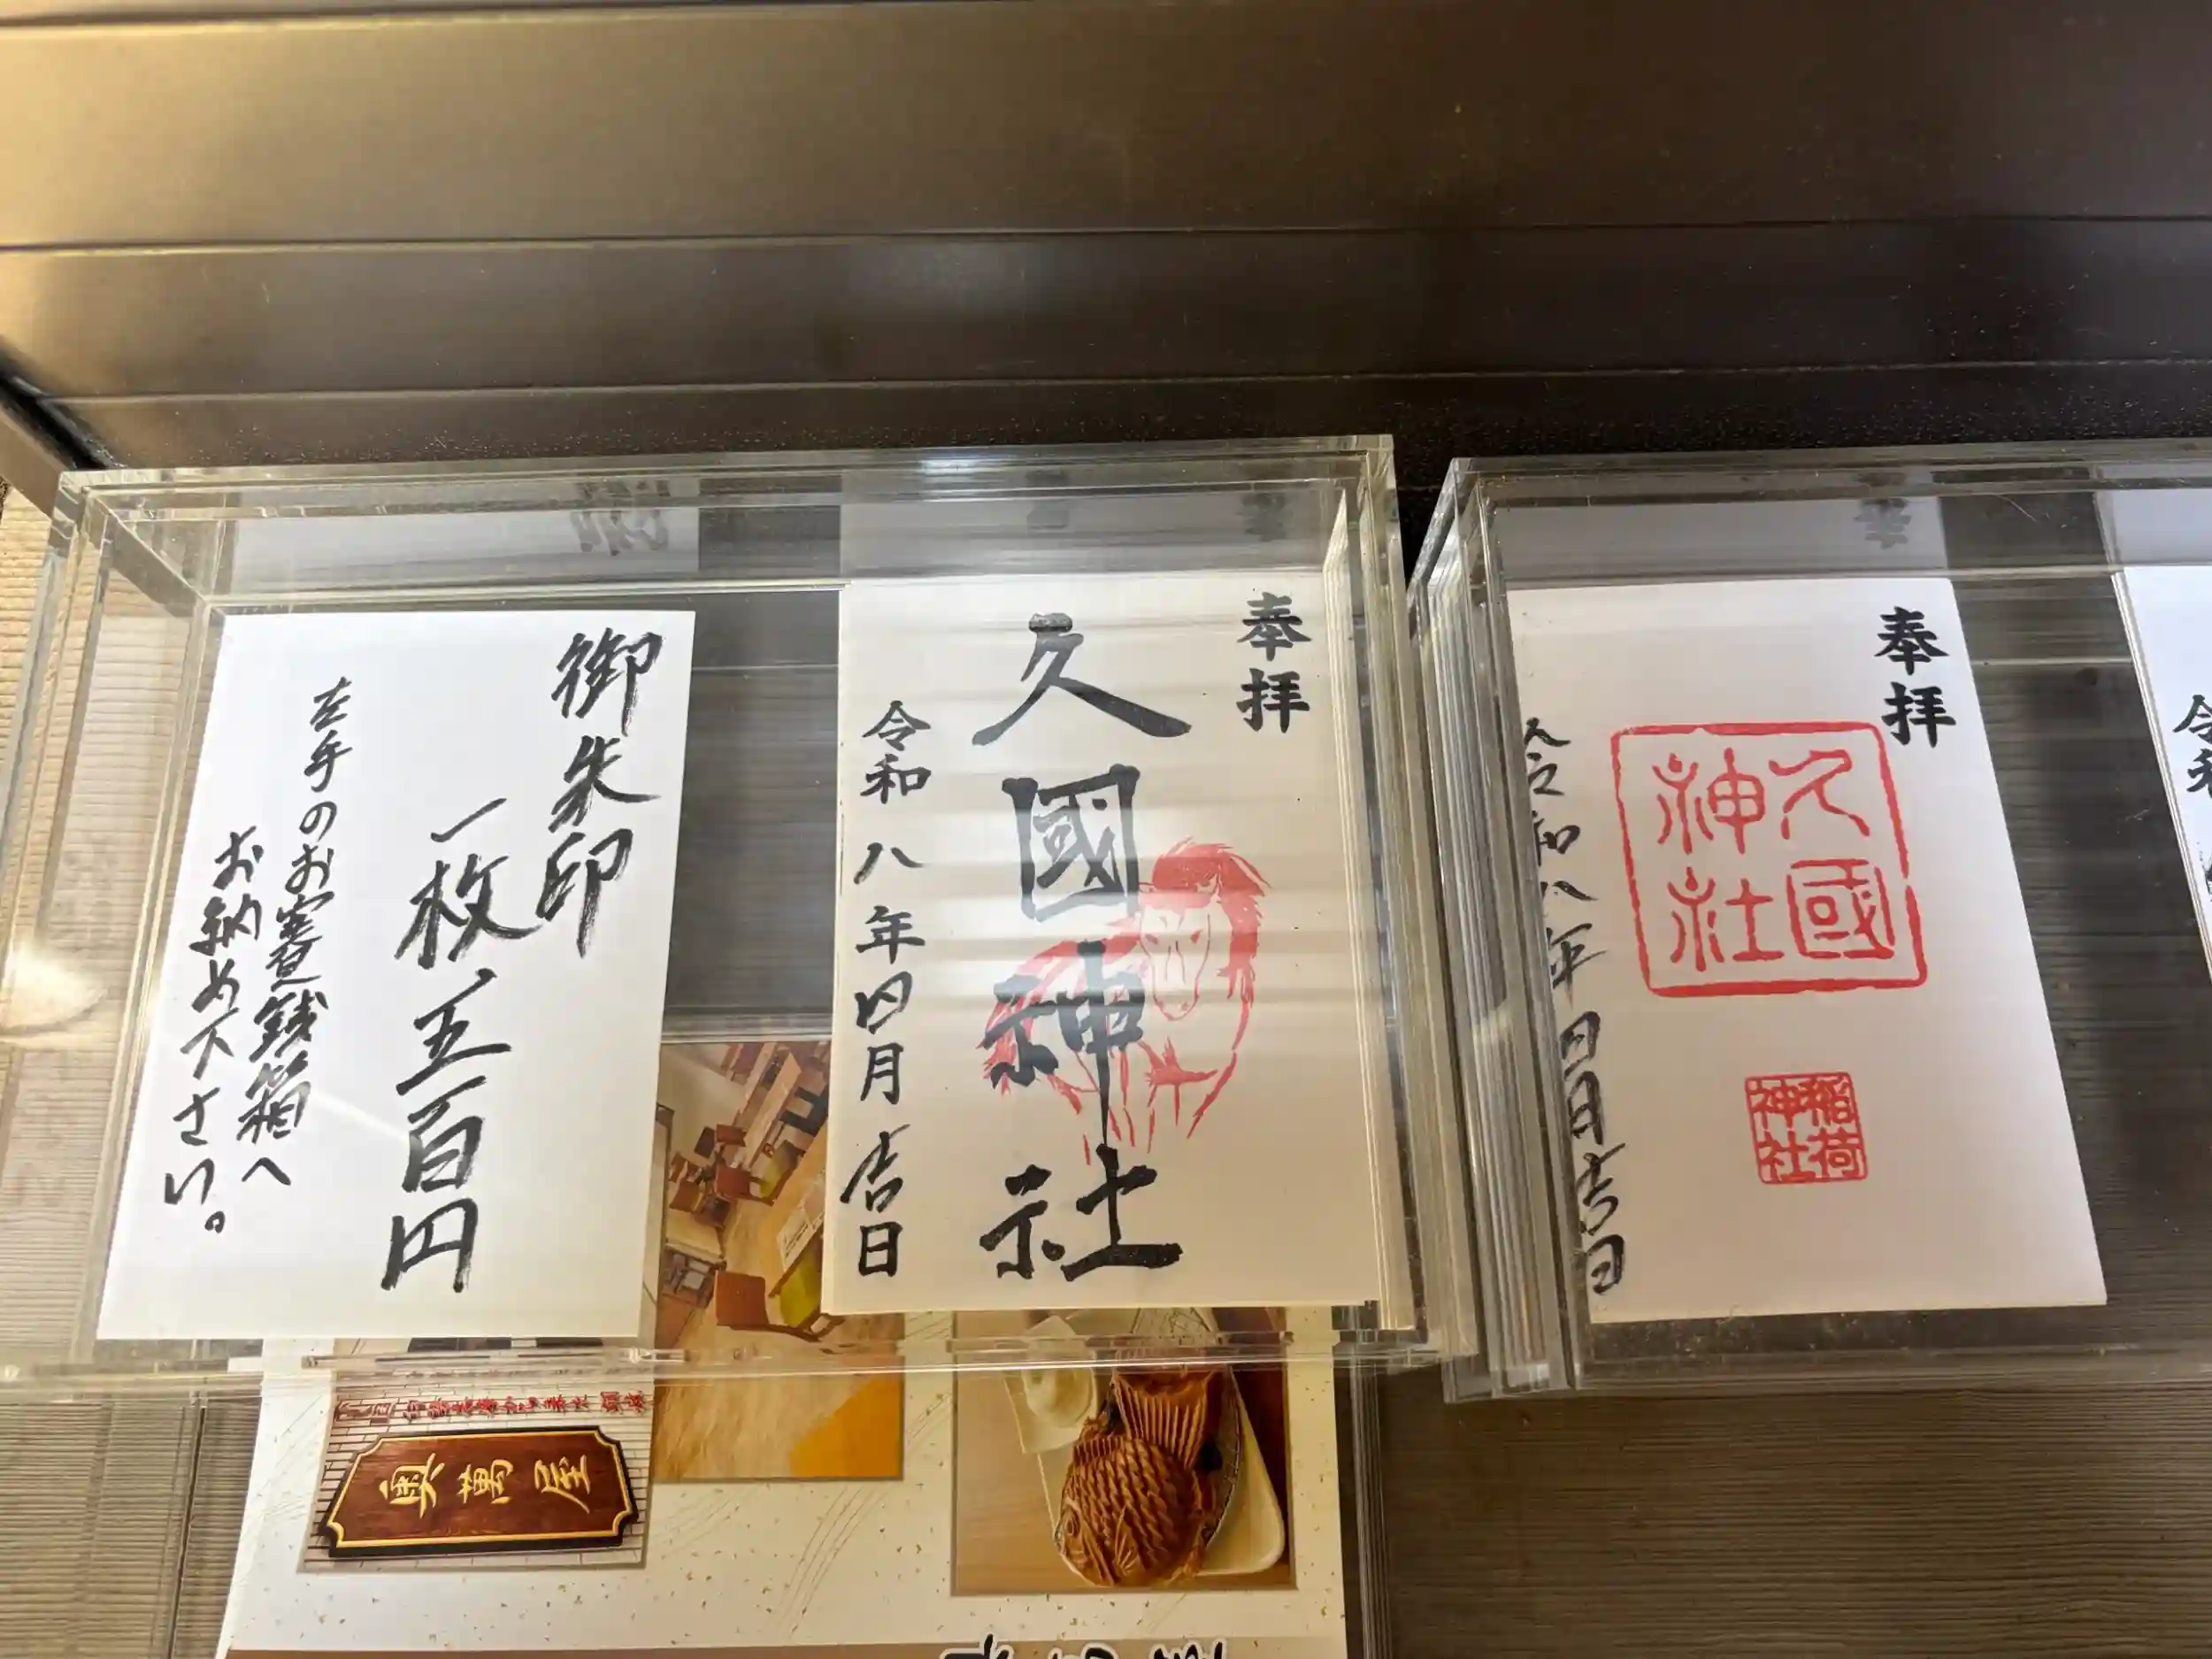 御朱印
一枚、五百円
左手のお賽銭箱へ
お納め下さい。
奉拝
久國神社
令和八年四月吉日
奉拝
久國
神社
稲荷
神社
令和八年四月吉日
令和
奥萬屋